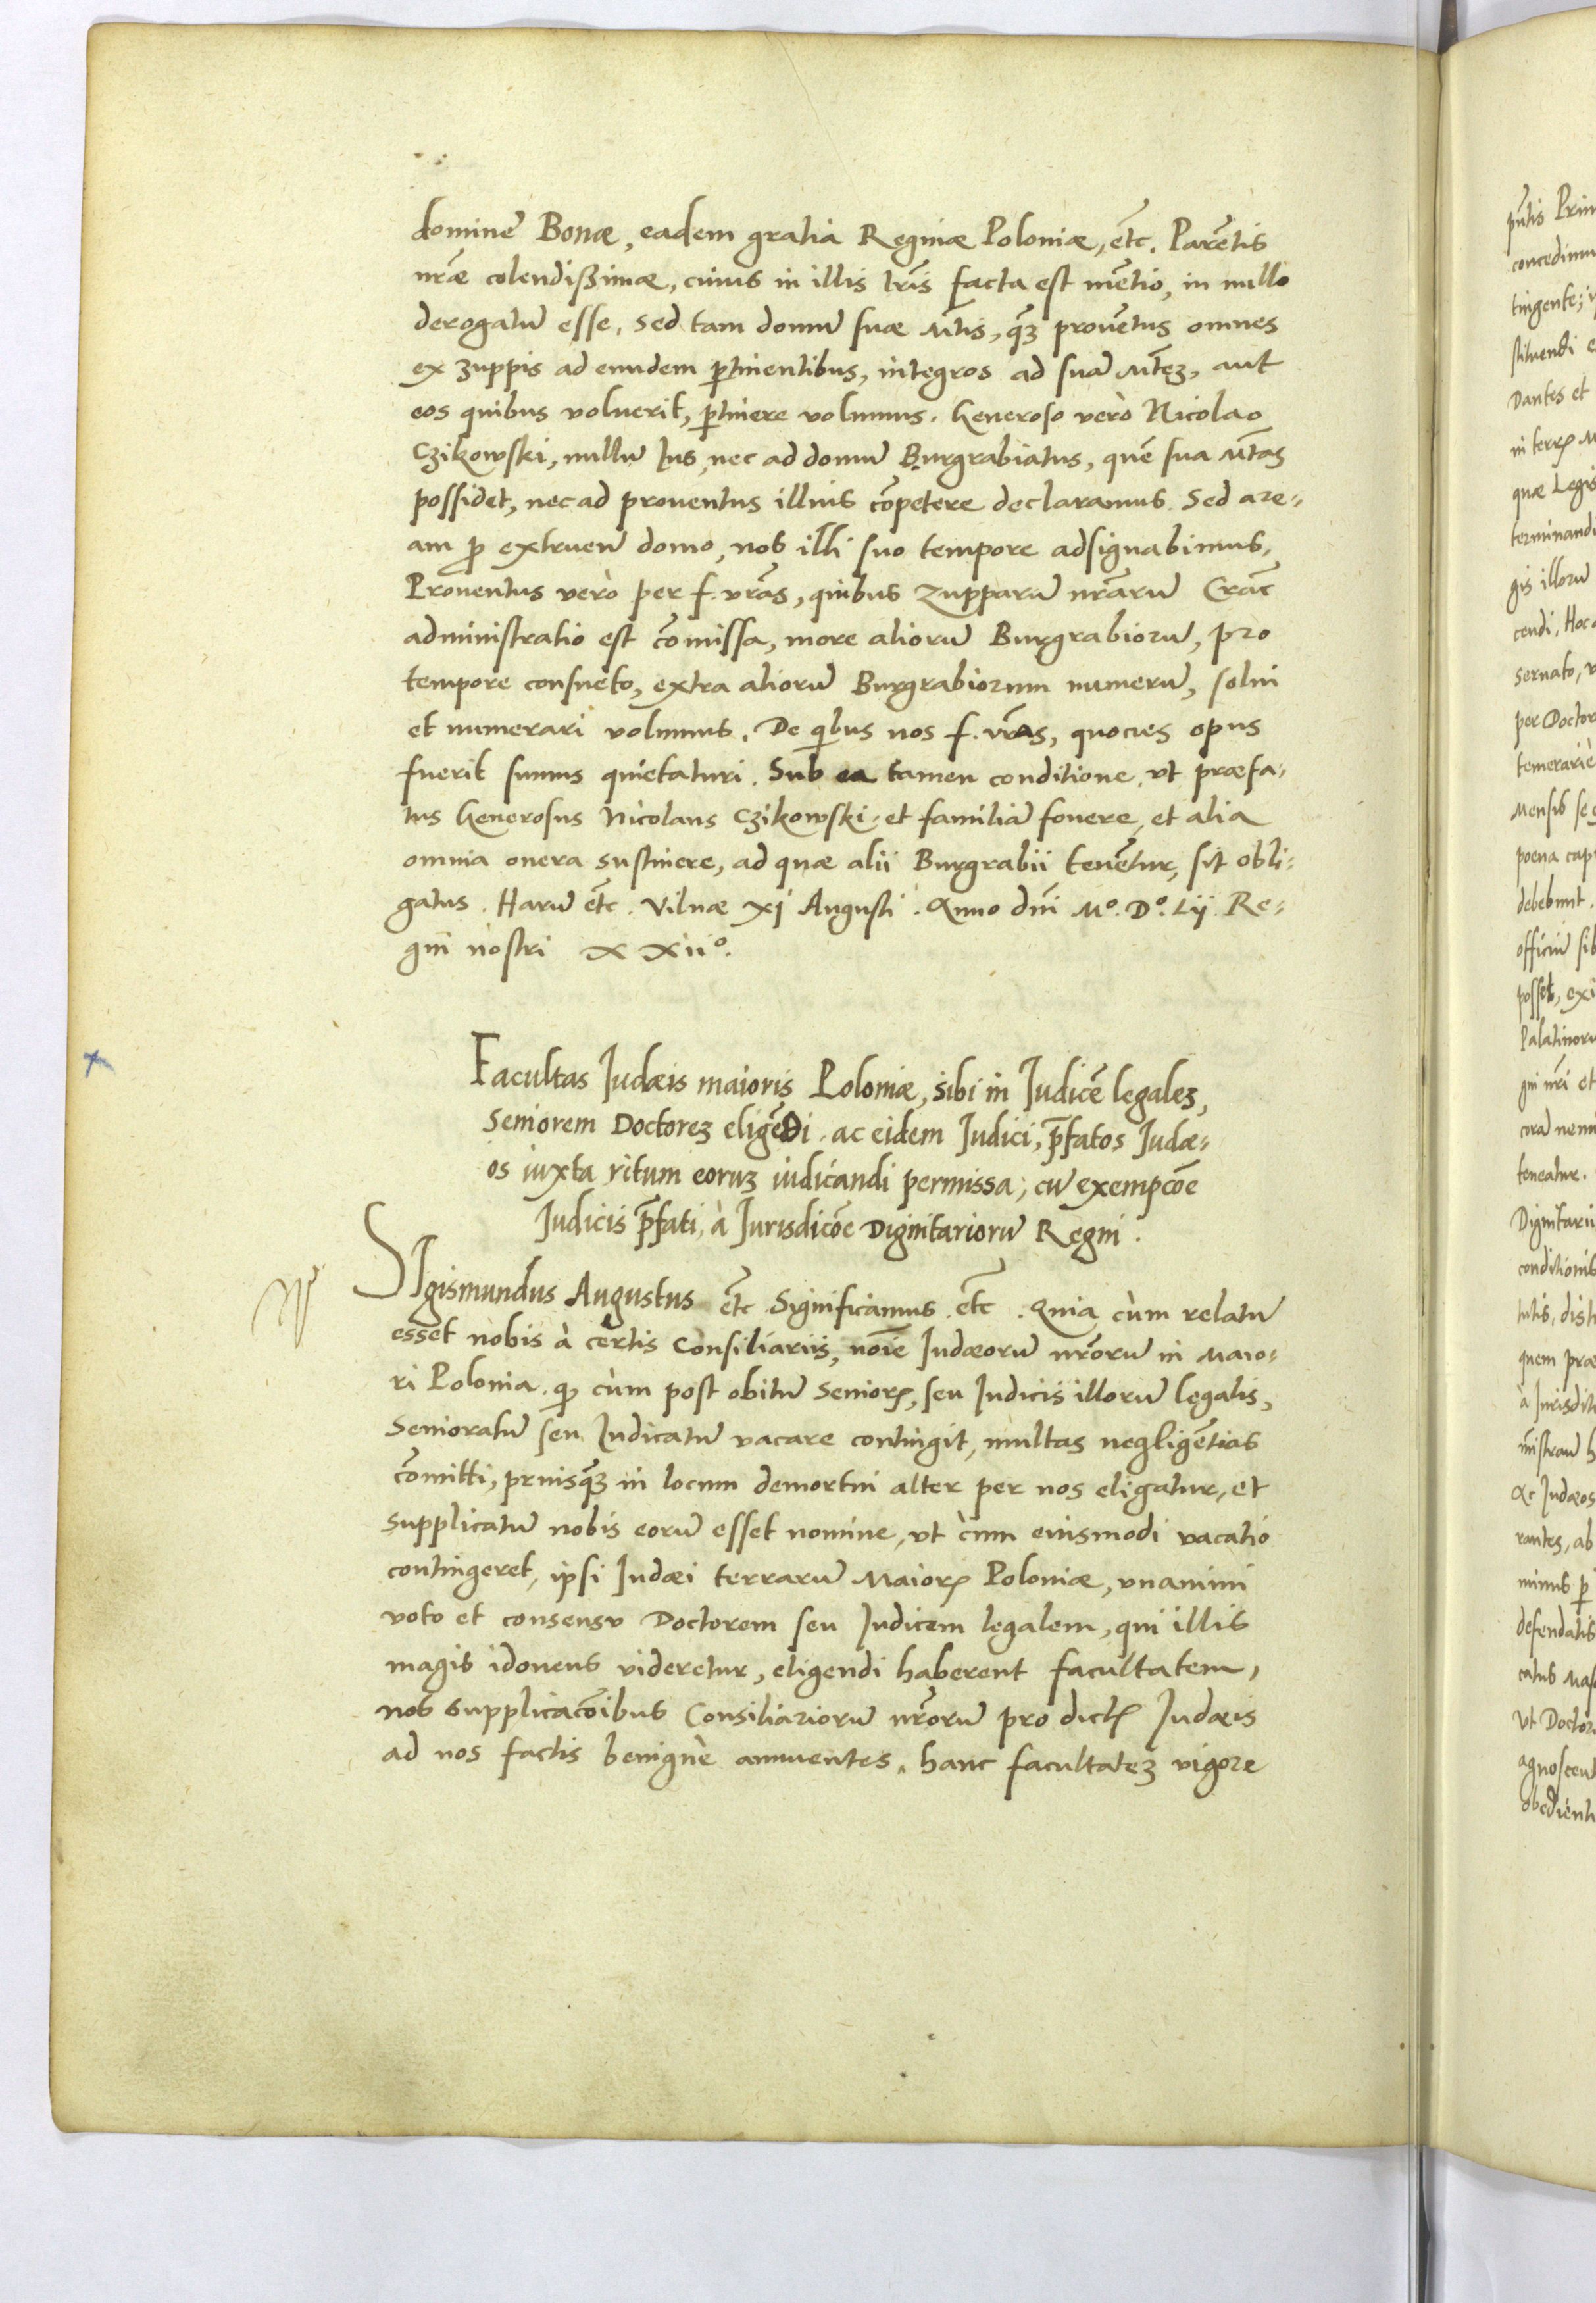 dominē Bonæ, eadem gratia Reginæ Poloniæ, etc̄. Parētis
nr̄æ colendißimæ, cuius in illis tr̄is facta est mētio, in nullo
derogatū esse, Sed tam domū suæ Mt̄is, q̄ꝫ provētus omnes
ex zuppis ad eundem ꝑtinentibus, integros ad suā Mt̄eꝫ, aut
eos quibus voluerit, ꝑtinere volumus. Generoso verò Nicolao
Czikowski, nullū Ius, nec ad domū Burgrabiatus, quē sua Mt̄as
possidet, nec ad proventus illius cōpetere declaramus. Sed are-
am ꝓ extruen̄ domo, nos illi suo tempore adsignabimus,
Proventus verò per f. vr̄as, quibus Zupparū nr̄arū Crac̄
administratio est cōmissa, more aliorū Burgrabiorū, pro
tempore consueto, extra aliorū Burgrabiorum numerū, solui
et numerari volumus. De qibus nos f. vr̄as, quocies opus
fuerit sumus quietaturi. Sub ea tamen conditione, vt præfa-
tus Generosus Nicolaus Czikowski, et familiā fouere, et alia
omnia onera sustinere, ad quæ alii Burgrabii tenētur, sit obli-
gatus. Harū etc̄. Vilnæ xj Augusti. Anno dn̄i Mº. Dº. Lij. Re-
gni nostri XXiiº.
Facultas Judæis maioris Poloniæ, sibi in Judicē legaleꝫ,
Seniorem Doctoreꝫ eligēdi. ac eidem Judici, p̄fatos Judæ-
os iuxta ritum eoruꝫ iudicandi permissa, cū exempcōe
Judicis p̄fati, à Jurisdicōe Dignitariorū Regni.
SIgismundus Augustus etc̄ Significamus etc̄. Quia cùm relatū
esset nobis à certis Consiliariis, noīe Judæorū nr̄orū in Maio-
ri Polonia. ꝙ cùm post obitū Senioris, seu Judicis illorū legalis,
Senioratū seu Judicatū vacare contingit, multas negligētias
cōmitti, priusq̄ꝫ in locum demortui alter per nos eligatur, et
supplicatū nobis eorū esset nomine, vt cùm eiusmodi vacatio
contingeret, ipsi Judæi terrarū Maioris Poloniæ, vnanimi
voto et consensu Doctorem seu Judicem legalem, qui illis
magis idoneus videretur, eligendi haberent facultatem,
nos supplicacōibus Consiliariorū nr̄orū pro dictis Judæis
ad nos factis benignè annuentes, hanc facultateꝫ vigore